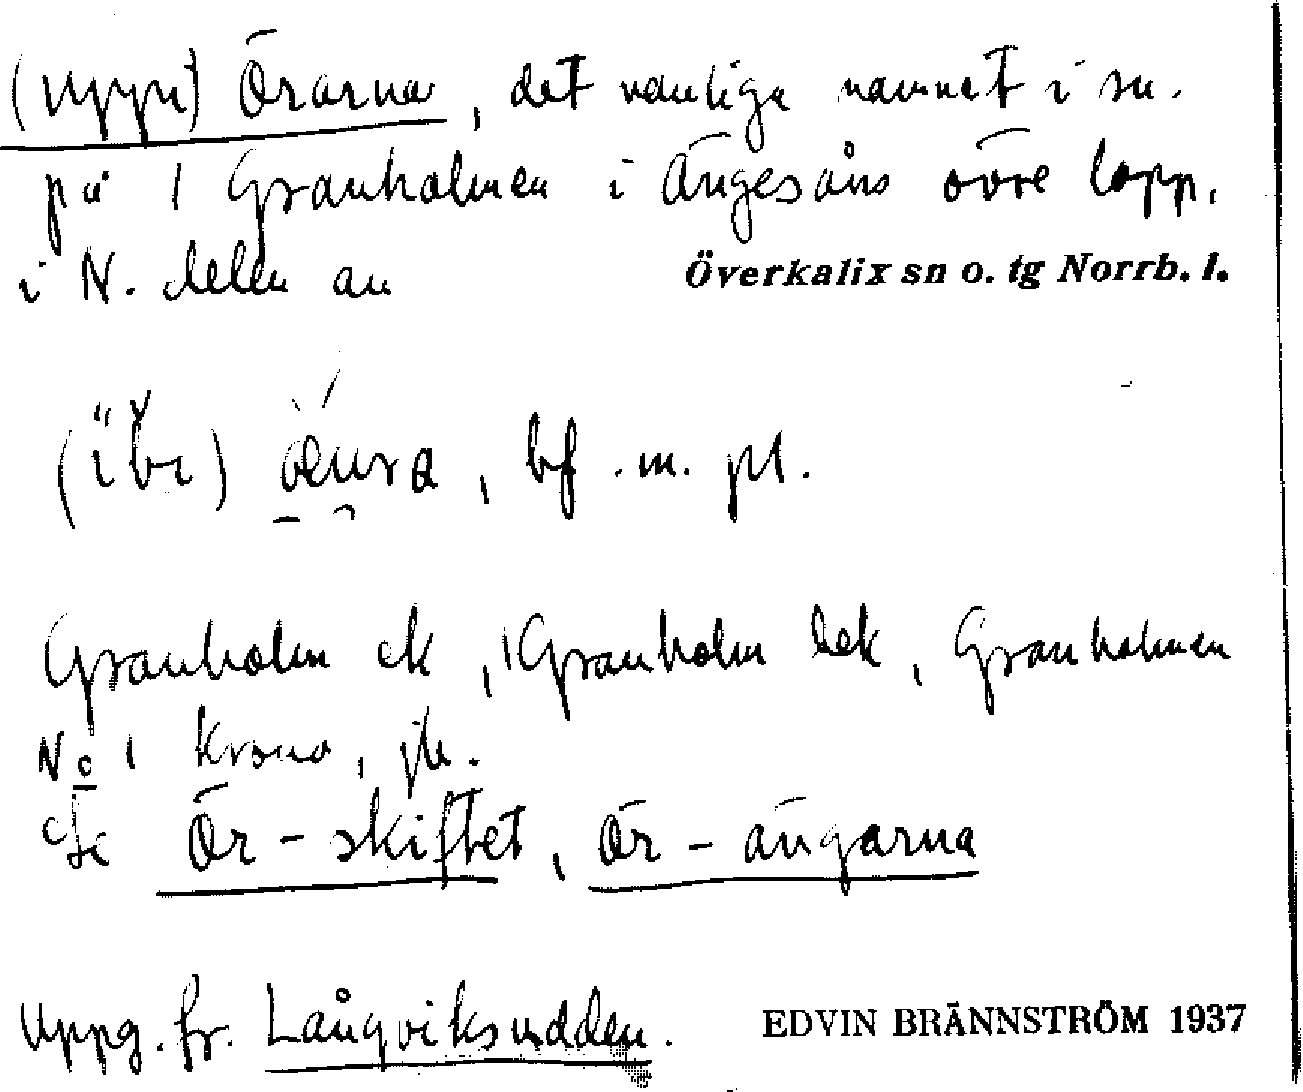 (uppi) Örarna, det vanliga namnet i sn.
på 1 Granholmen i Ängesåns övre lopp,
i N. delen av
Överkalix sn o. tg Norrb. l.
bf. m. pl.
Granholm ek, 1 Granholm bek, Granholmen
No 1 krono, jb.
Se Ör-skiftet, Ör-ängarna
Uppg. fr. Långviksudden.
EDVIN BRÄNNSTRÖM 1937